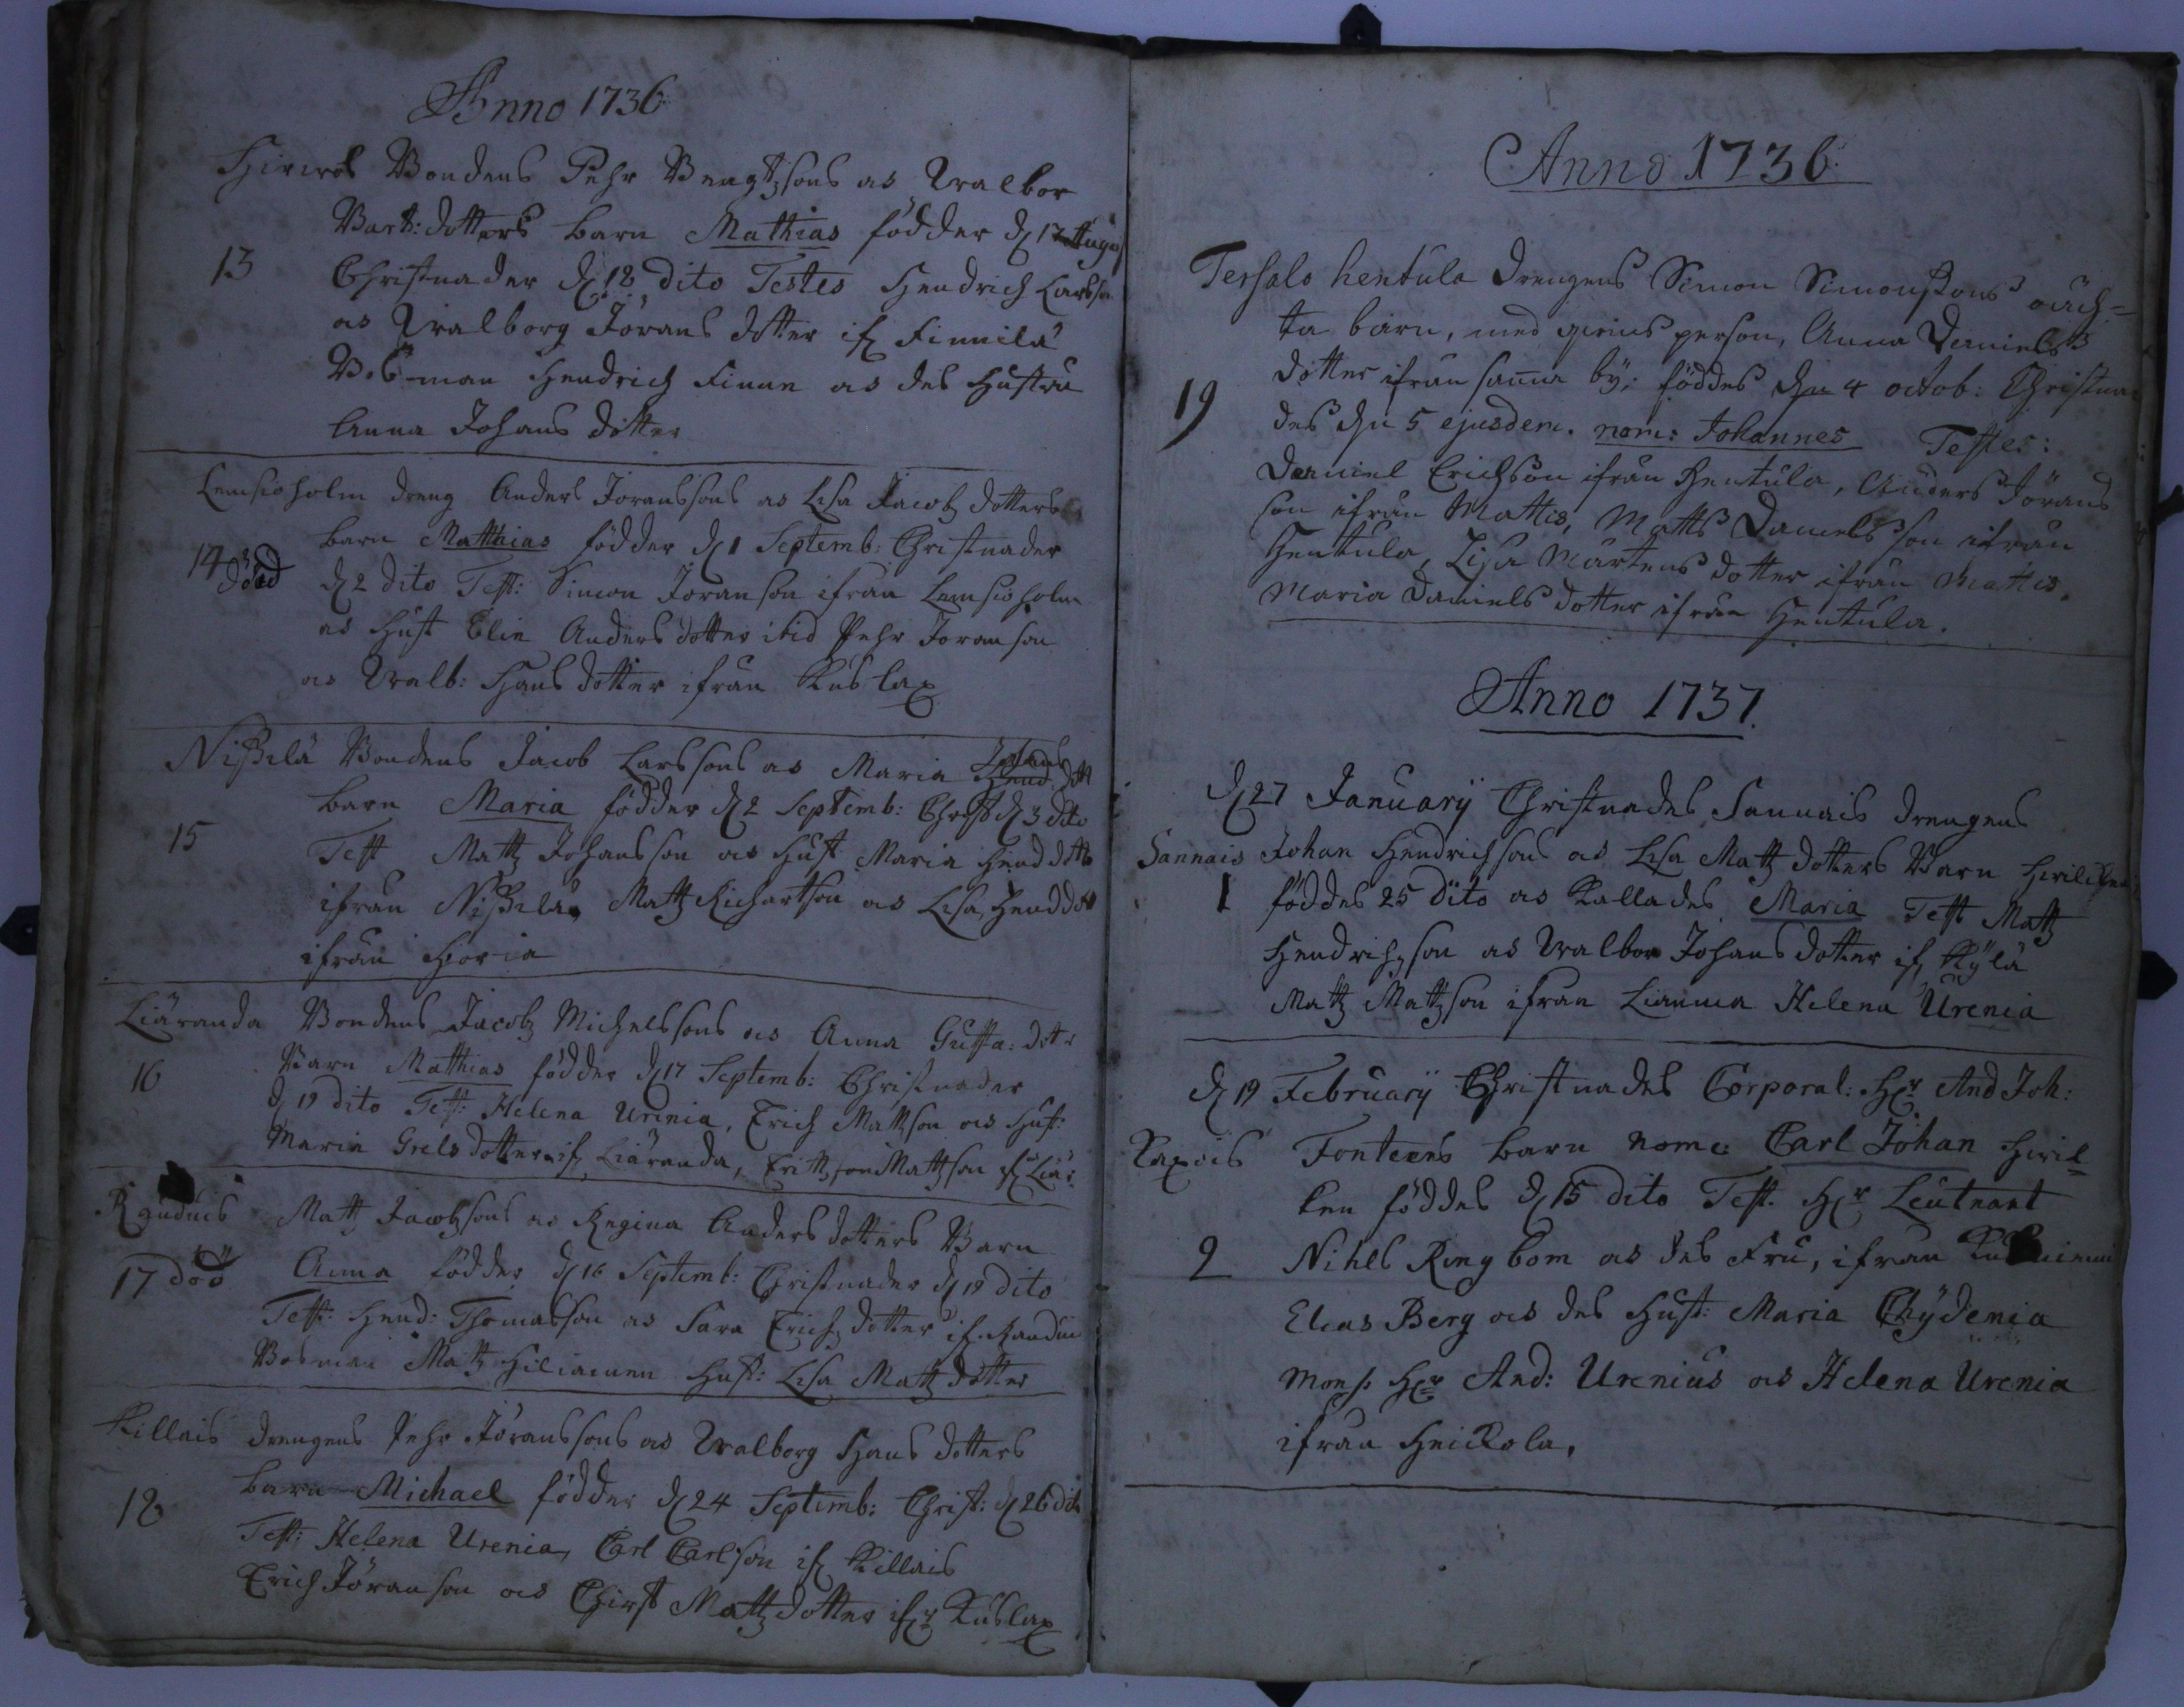 Anno 1736
Bondens Pehr Bengtzsons os Walbor
Bart: dotters barn Mathias födder d 17 Augus
13 Christnader d 18 dito Testes Hendrich Larsson
os Walborg Jörans dotter if Finnilä
Bosman Hendrich Finne os des Hustru
Anna Johans dotter
Lemsioholm dreng Anders Joranssons os Lisa Jacobz dotters
barn Matthias födder d 1 Septemb: Christnader
14 död d 2 dito Test: Simon Joranson ifrån Lemsioholm
os Hust Elin Anders dotter ibid Pehr Joranson
os Walb: Hans dotter ifrån Kuslax
Nissilä Bondens Jacob Larssons os Maria Johans Hend: dott
barn Maria födder d 2 Septemb: Christ d 3 dito
15 Test Matz Johansson os Hust Maria Hend dotter
ifrån Nissilä, Matz Richartson os Lisa Hend dott
ifrån
Liäranda Bondens Jacob Michelssons os Anna Gusta: dotr
16 Barn Matthias födder d 17 Septemb: Christnader
d 19 dito Test: Helena Urenia, Erich Mattson os Hust:
Maria Grels dotter if Liäranda, Mattson if Liä:
Randais Matz Jacobsons os Regina Anders dotters Barn
17 död Anna födder d 16 Septemb: Christnader d 19 dito
Test: Hend: Thomasson os Sara Erichz dotter if. Randais
Bosman Matz Hust: Lisa Matz dotter
Killais drengens Pehr Jöranssons os Walborg Hans dotters
18 barn Michael födder d 24 Septemb: Christ: d 26 dito
Test: Helena Urenia, Carl Carlson if Killais
Erich Jöranson os Chirst Matz dotter ifr Kuslax
Anno 1736:
Tersalo hentula Drengens Simon Simonssons oäch-
ta barn, med person, Anna Daniels
dotter ifrån samma bÿ: föddes den 4 octob: Christna-
19 des den 5 ejusdem. nom: Johannes Testes:
Daniel Erichson ifrån Hentula, Anders Jörans
son ifrån Mattis, Matts Danielsson ifrån
Hentula, Lisa Mårtens dotter ifrån Mattis.
Maria Daniels dotter ifrån Hentula.
Anno 1737.
d 27 Januarÿ Christnades Sannais drengens
Sannais Johan Hendrichsons os Lisa Matz dotters Barn
1 föddes 25 dito os Kallades Maria Test Matz
Hendrichson os Walbor Johans dotter if, Kÿlä
Matz Matzson ifrån Lianma Helena Urenia
d 19 Februarÿ Christnades Corporal: Hr And Joh:
Fonteens barn nome Carl Johan hvil-
ken föddes d 15 dito Test. Hr Leutnant
2 Nihls Ringbom os des Fru, ifrån
Elias Berg os des Hust: Maria Chÿdenia
Mons. Hr And: Urenius os Helena Urenia
ifrån Heickola,